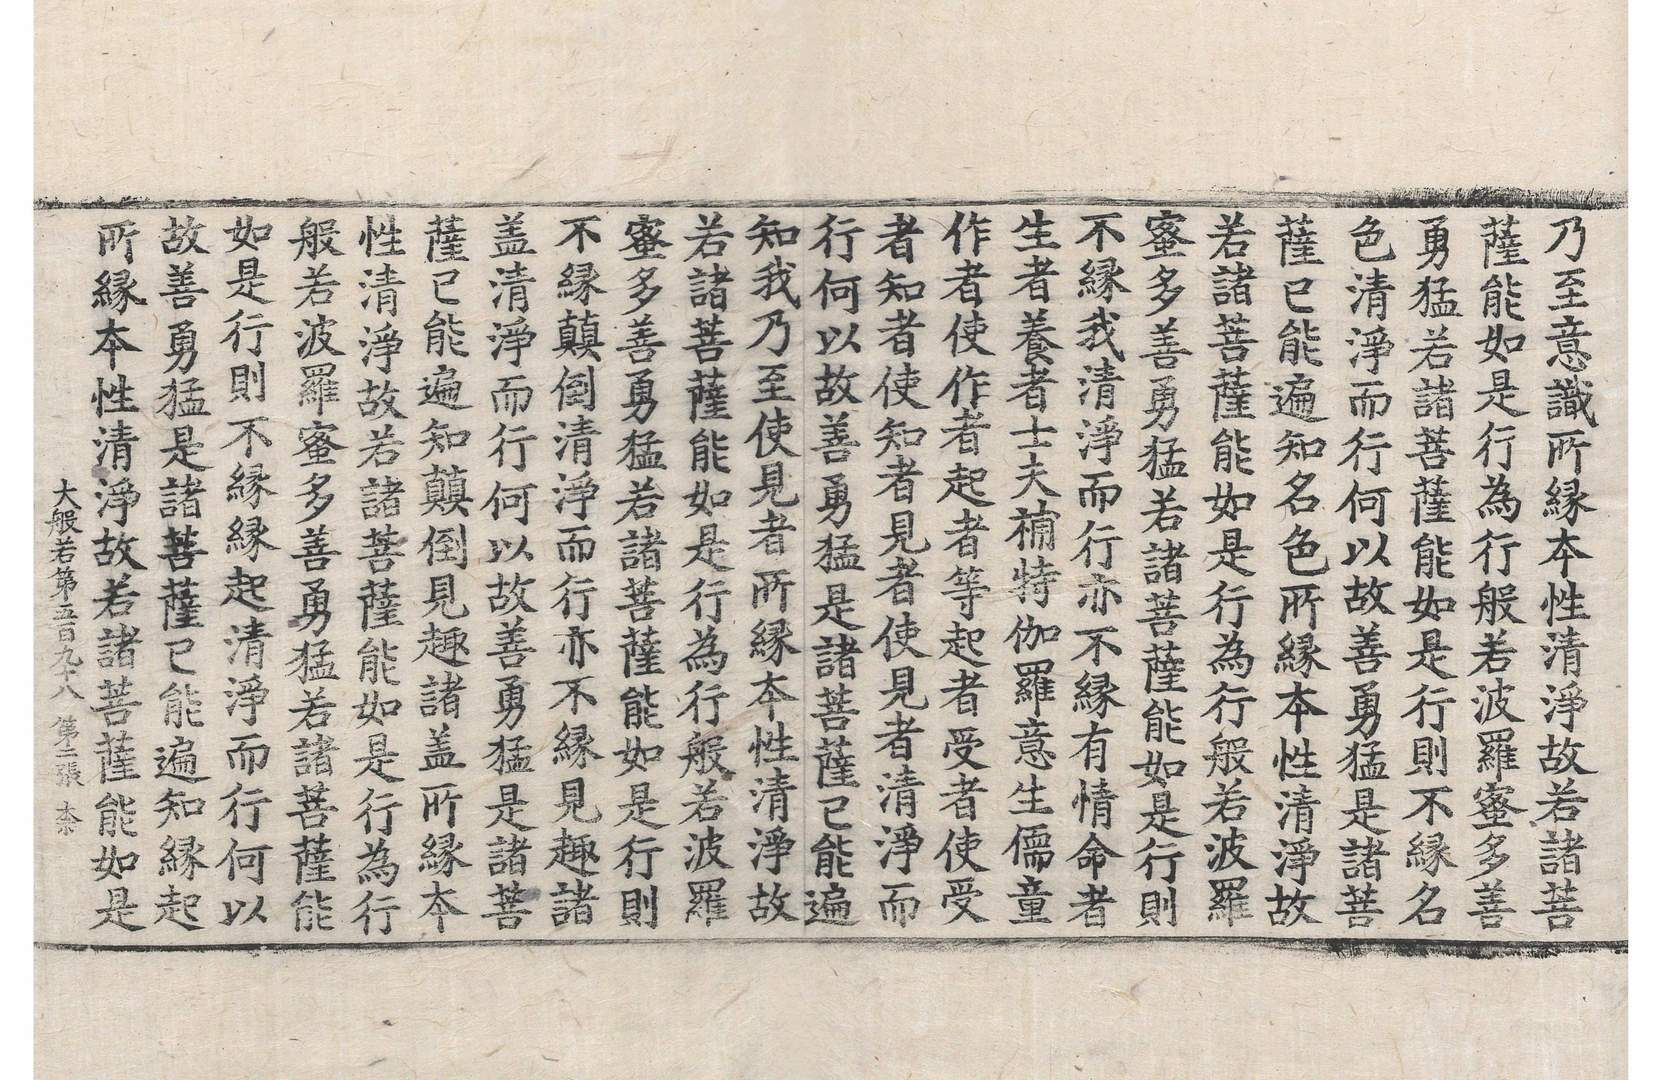 乃至意識所縁本性清淨故若諸菩
薩能如是行為行般若波羅蜜多善
勇猛若諸菩薩能如是行則不縁名
色清淨而行何以故善勇猛是諸菩
薩已能遍知名色所縁本性清淨故
若諸菩薩能如是行為行般若波羅
蜜多善勇猛若諸菩薩能如是行則
不縁我清淨而行亦不縁有情命者
生者養者士夫補特伽羅意生儒童
作者使作者起者等起者受者使受
者知者使知者見者使見者清淨而
行何以故善勇猛是諸菩薩已能遍
知我乃至使見者所縁本性清淨故
若諸菩薩能如是行為行般若波羅
蜜多善勇猛若諸菩薩能如是行則
不縁顛倒清淨而行亦不縁見趣諸
盖清淨而行何以故善勇猛是諸菩
薩已能遍知顛倒見趣諸盖所縁本
性清淨故若諸菩薩能如是行為行
般若波羅蜜多善勇猛若諸菩薩能
如是行則不縁縁起清淨而行何以
故善勇猛是諸菩薩已能遍知縁起
所縁本性清淨故若諸菩薩能如是
大般若第五百九十八 第二張 柰